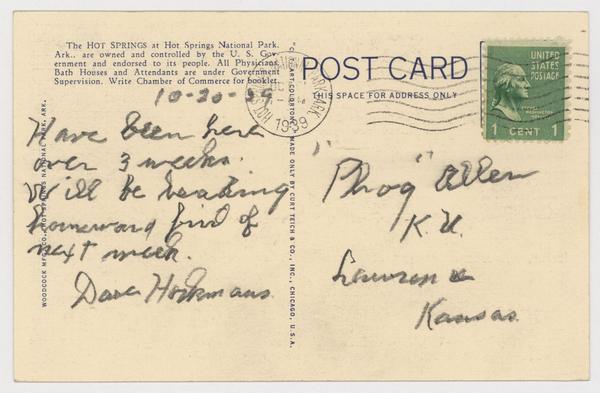 The HOT SPRINGS at Hot Springs National Park,
Ark., are owned and controlled by the U. S. Gov-
ernment and endorsed to its people. All Physicians,
Bath Houses and Attendants are under Government
Supervision. Write Chamber of Commerce for booklet.
10-20-39
Have been here
over 3 weeks.
Will be heading
homeward first of
next week.
Dave Hockmans.
WOODCOCK MFG. CO., HOT SPRINGS NATIONAL PARK, ARK.
"C.T. ART-COLORTONE" MADE ONLY BY CURT TEICH & CO., INC., CHICAGO, U.S.A.
POST CARD
THIS SPACE FOR ADDRESS ONLY
HOT SPRINGS NAT'L PARK ARK
1939
UNITED
STATES
POSTAGE
1 CENT 1
"Phog" Allen
K.U.
Lawrence
Kansas.